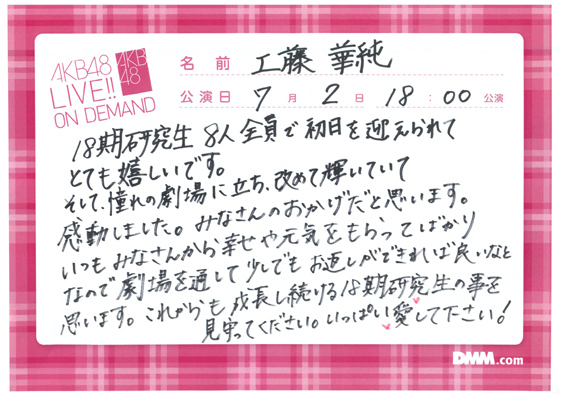 AKB48
LIVE!!
ON DEMAND
AKB
48
名前 工藤 華純
公演日 7月2日 18:00公演
18期研究生 8人全員で初日を迎えられて
とても嬉しいです。
そして、憧れの劇場に立ち、改めて輝いていて
感動しました。みなさんのおかげだと思います。
いつもみなさんから幸せや元気をもらってばかり
なので劇場を通して少しでもお返しができれば良いなと
思います。これからも成長し続ける18期研究生の事を
見守ってください。いっぱい愛して下さい!
DMM.com